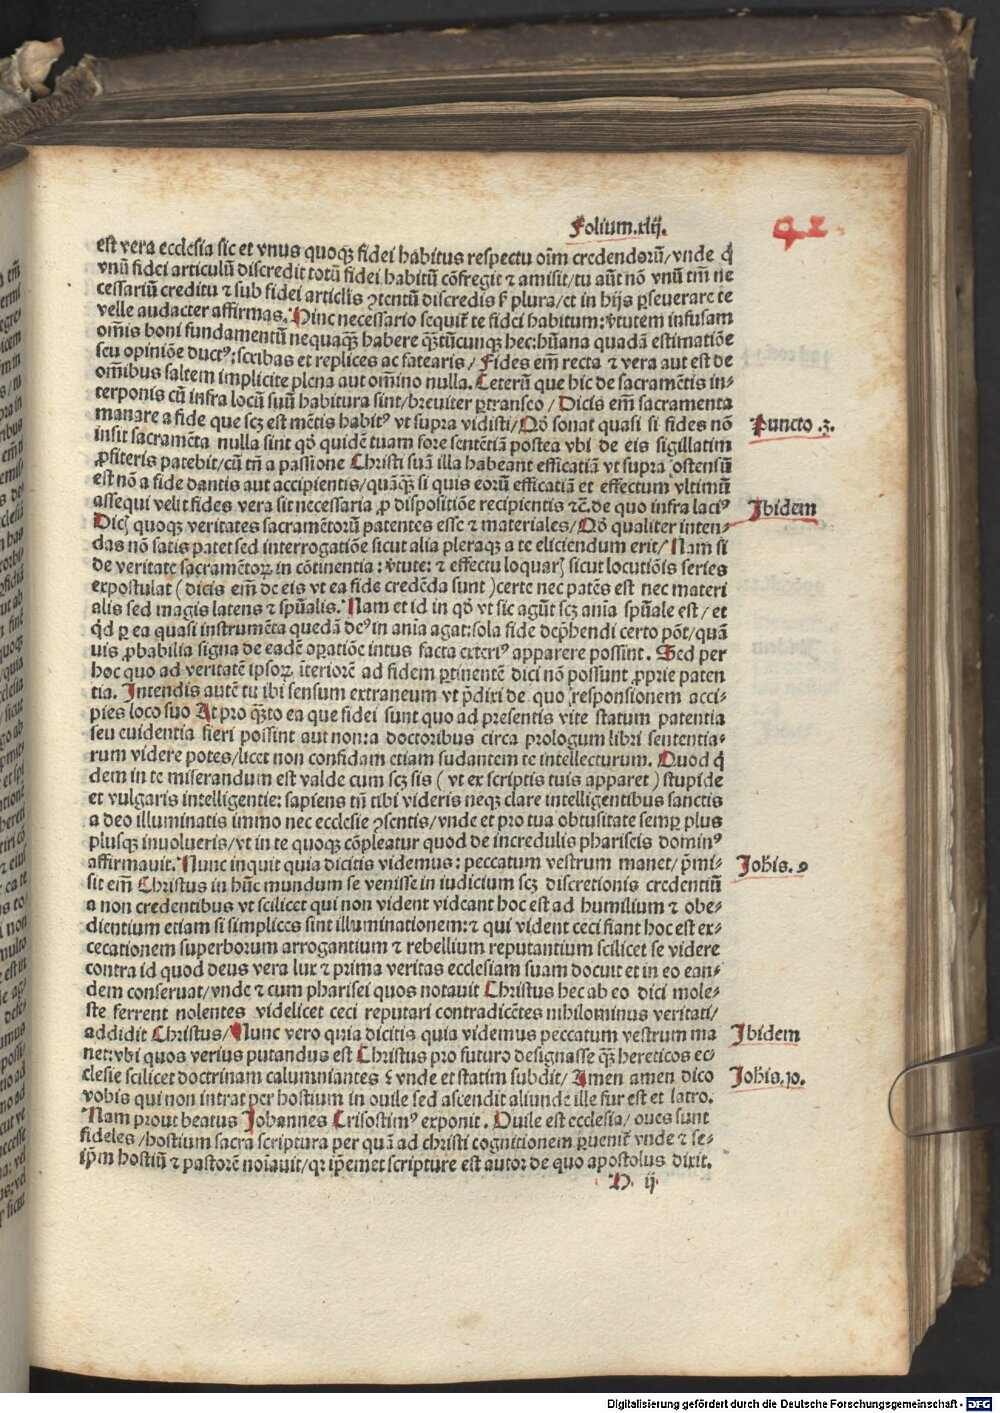 Folium.xlij.
42
est vera ecclesia sic et vnus quoqꝫ fidei habitus respectu oīm credendorū/vnde q̇
vnū fidei articulū discredit totū fidei habitū cōfregit ⁊ amisit/tu aūt nō vnū tm̄ ne
cessariū creditu ⁊ sub fidei articlis ꝯtentū discredis sꝫ plura/et in hijs ꝑseuerare te
velle audacter affirmas. Hinc necessario sequiť te fidei habitum: v̄tutem infusam
om̄is boni fundamentū nequaqꝫ habere qꝫtūcunqꝫ hec: hūana quadā estimatiōe
seu opiniōe ductꝰ: scribas et replices ac fatearis/ Fides em̄ recta ⁊ vera aut est de
om̄ibus saltem implicite plena aut om̄ino nulla. Ceterū que hic de sacramētis in⸗
terponis cū infra locū suū habitura sint/breuiter ꝑtranseo/ Dicis em̄ sacramenta
manare a fide que scꝫ est mētis habitꝰ vt supra vidisti/Qḋ sonat quasi si fides nō
insit sacramēta nulla sint qḋ quidē tuam fore sentētiā postea vbi de eis sigillatim
ꝓfiteris patebit/cū tn̄ a passione Christi suā illa habeant efficatiā vt supra ostensū
est nō a fide dantis aut accipientis/quāqꝫ si quis eorū efficatiā et effectum vltimū
assequi velit fides vera sit necessaria ꝓ dispositiōe recipientis ⁊c̄. de quo infra laciꝰ
Dicꝭ quoqꝫ veritates sacramētorū patentes esse ⁊ materiales/ Qḋ qualiter inten⸗
das nō satis patet sed interrogatiōe sicut alia pleraqꝫ a te eliciendum erit/ Nam si
de veritate sacramētoꝝ in cōtinentia: v̄tute: ⁊ effectu loquarꝭ sicut locutiōis series
expostulat (dicis em̄ de eis vt ea fide credēda sunt) certe nec patēs est nec materi
alis sed magis latens ⁊ spūalis. Nam et id in qḋ vt sic agūt scꝫ aīa spūale est/ et
qḋ ꝑ ea quasi instrumēta quedā deꝰ in aīa agat: sola fide dep̄hendi certo pōt/quā
uis ꝓbabilia signa de eadē oꝑatiōe intus facta exteriꝰ apparere possint. Sed per
hoc quo ad veritatē ipsoꝝ īteriorē ad fidem ꝑtinentē dici nō possunt ꝓprie paten
tia. Intendis autē tu ibi sensum extraneum vt p̄dixi de quo responsionem acci⸗
pies loco suo At pro qꝫto ea que fidei sunt quo ad presentis vite statum patentia
seu euidentia fieri possint aut non: a doctoribus circa prologum libri sententia⸗
rum videre potes/licet non confidam etiam sudantem te intellecturum. Quod q̇
dem in te miserandum est valde cum scꝫ sis (vt ex scriptis tuis apparet) stupide
et vulgaris intelligentie: sapiens tn̄ tibi videris neqꝫ clare intelligentibus sanctis
a deo illuminatis immo nec ecclesie ꝯsentis/vnde et pro tua obtusitate semꝑ plus
plusqꝫ inuolueris/vt in te quoqꝫ cōpleatur quod de incredulis phariseis dominꝰ
affirmauit. Nunc inquit quia dicitis videmus: peccatum vestrum manet/ p̄mi⸗
sit em̄ Christus in hūc mundum se venisse in iudicium scꝫ discretionis credentiū
a non credentibus vt scilicet qui non vident videant hoc est ad humilium ⁊ obe⸗
dientium etiam si simplices sint illuminationem: ⁊ qui vident ceci fiant hoc est ex⸗
cecationem superborum arrogantium ⁊ rebellium reputantium scilicet se videre
contra id quod deus vera lux ⁊ prima veritas ecclesiam suam docuit et in eo ean⸗
dem conseruat/vnde ⁊ cum pharisei quos notauit Christus hec ab eo dici mole⸗
ste ferrent nolentes videlicet ceci reputari contradicētes nihilominus veritati/
addidit Christus/ Nunc vero quia dicitis quia videmus peccatum vestrum ma
net: vbi quos verius putandus est Christus pro futuro designasse qꝫ hereticos ec⸗
clesie scilicet doctrinam calumniantes ? vnde et statim subdit/ Amen amen dico
vobis qui non intrat per hostium in ouile sed ascendit aliunde ille fur est et latro.
Nam prout beatus Johannes Crisostimꝰ exponit. Ouile est ecclesia/ oues sunt
fideles/hostium sacra scriptura per quā ad christi cognitionem ꝑueniť vnde ⁊ se⸗
ip̄m hostiū ⁊ pastorē noīauit/qꝛ ip̄emet scripture est autor de quo apostolus dixit.
H ij
Puncto .3.
Ibidem
Johis. 9
Ibidem
Johis. 10.
Digitalisierung gefördert durch die Deutsche Forschungsgemeinschaft - DFG